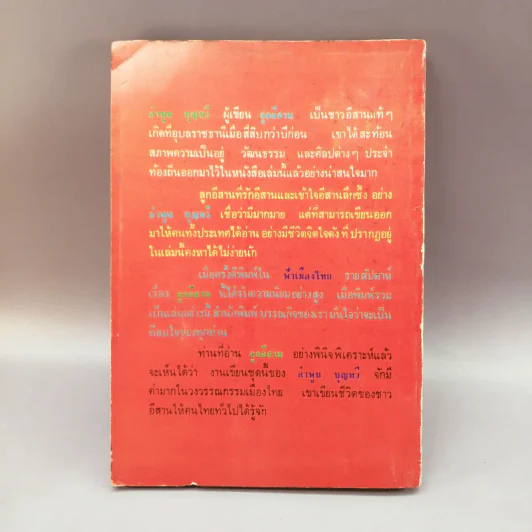 คำพูน บุญทวี ผู้เขียน ลูกอีสาน เป็นชาวอีสานแท้ ๆ
เกิดที่อุบลราชธานีเมื่อสี่สิบกว่าปีก่อน เขาได้สะท้อน
สภาพความเป็นอยู่ วัฒนธรรม และศิลปต่าง ๆ ประจำ
ท้องถิ่นออกมาไว้ในหนังสือเล่มนี้แล้วอย่างน่าสนใจมาก
ลูกอีสานที่รักอีสานและเข้าใจอีสานลึกซึ้ง อย่าง
คำพูน บุญทวี เชื่อว่ามีมากมาย แต่ที่สามารถเขียนออก
มาให้คนทั้งประเทศได้อ่าน อย่างมีชีวิตจิตใจดัง ที่ ปรากฏอยู่
ในเล่มนี้คงหาได้ไม่ง่ายนัก
เมื่อครั้งตีพิมพ์ใน ฟ้าเมืองไทย รายสัปดาห์
เรื่อง ลูกอีสาน นี้ได้รับความนิยมอย่างสูง เมื่อพิมพ์รวม
เป็นเล่มอย่างนี้ สำนักพิมพ์ บรรณกิจของเรา มั่นใจว่าจะเป็น
ที่สนใจของทุกท่าน
ท่านที่อ่าน ลูกอีสาน อย่างพินิจพิเคราะห์แล้ว
จะเห็นได้ว่า งานเขียนชุดนี้ของ คำพูน บุญทวี จักมี
ค่ามากในวงวรรณกรรมเมืองไทย เขาเขียนชีวิตของชาว
อีสานให้คนไทยทั่วไปได้รู้จัก